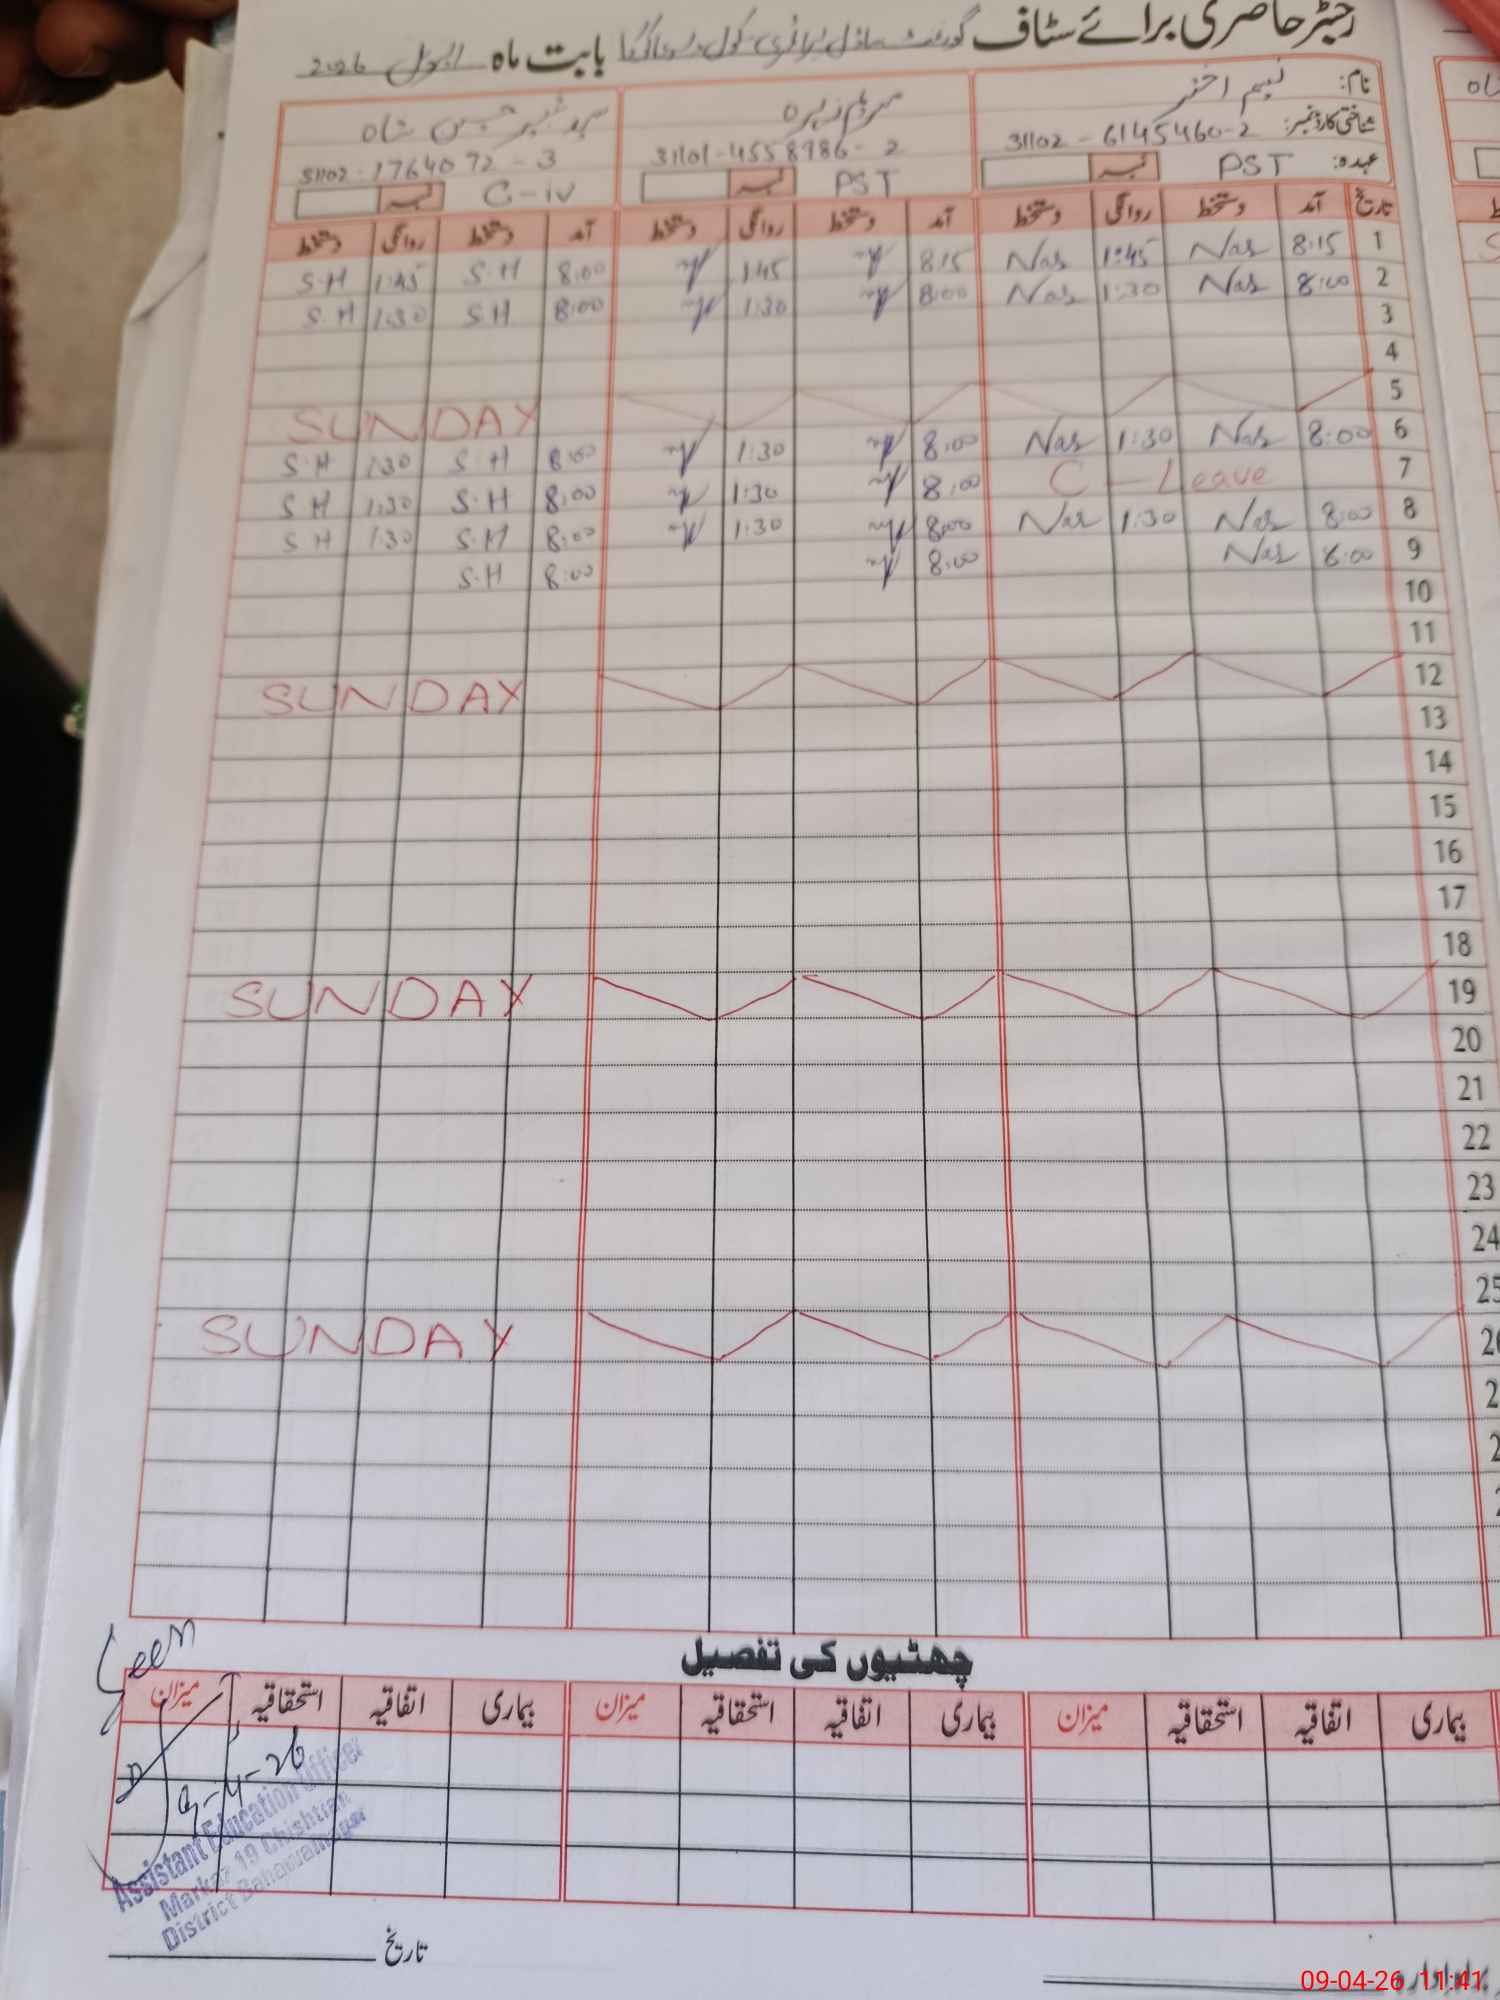 رجسٹر حاضری برائے سٹاف گورنمنٹ ماڈل پرائمری سکول بابت ماہ اپریل 2026
نام: نسیم اختر مریم زہرہ سید شبیر حسین شاہ
شناختی کارڈ نمبر: 31102-6145460-2 31101-4558986-2 31102-1764072-3
عہدہ: PST PST C-iv
تاریخ آمد دستخط روانگی دستخط آمد دستخط روانگی دستخط آمد دستخط روانگی دستخط
1 8:15 Nas 1:45 Nas 8:15 1:45 8:00 S.H 1:45 S.H
2 8:00 Nas 1:30 Nas 8:00 1:30 8:00 S.H 1:30 S.H
3
4
5 SUNDAY
6 8:00 Nas 1:30 Nas 8:00 1:30 8:00 S.H 1:30 S.H
7 C-Leave 8:00 1:30 8:00 S.H 1:30 S.H
8 8:00 Nas 1:30 Nas 8:00 1:30 8:00 S.H 1:30 S.H
9 8:00 Nas 8:00 8:00 S.H
10
11
12 SUNDAY
13
14
15
16
17
18
19 SUNDAY
20
21
22
23
24
25
SUNDAY
چھٹیوں کی تفصیل
بیماری اتفاقیہ استحقاقیہ میزان بیماری اتفاقیہ استحقاقیہ میزان بیماری اتفاقیہ استحقاقیہ میزان
Seen
9-4-26
Assistant Education Officer
Markaz 19 Chishtian
District Bahawalnagar
تاریخ
09-04-26 11:41